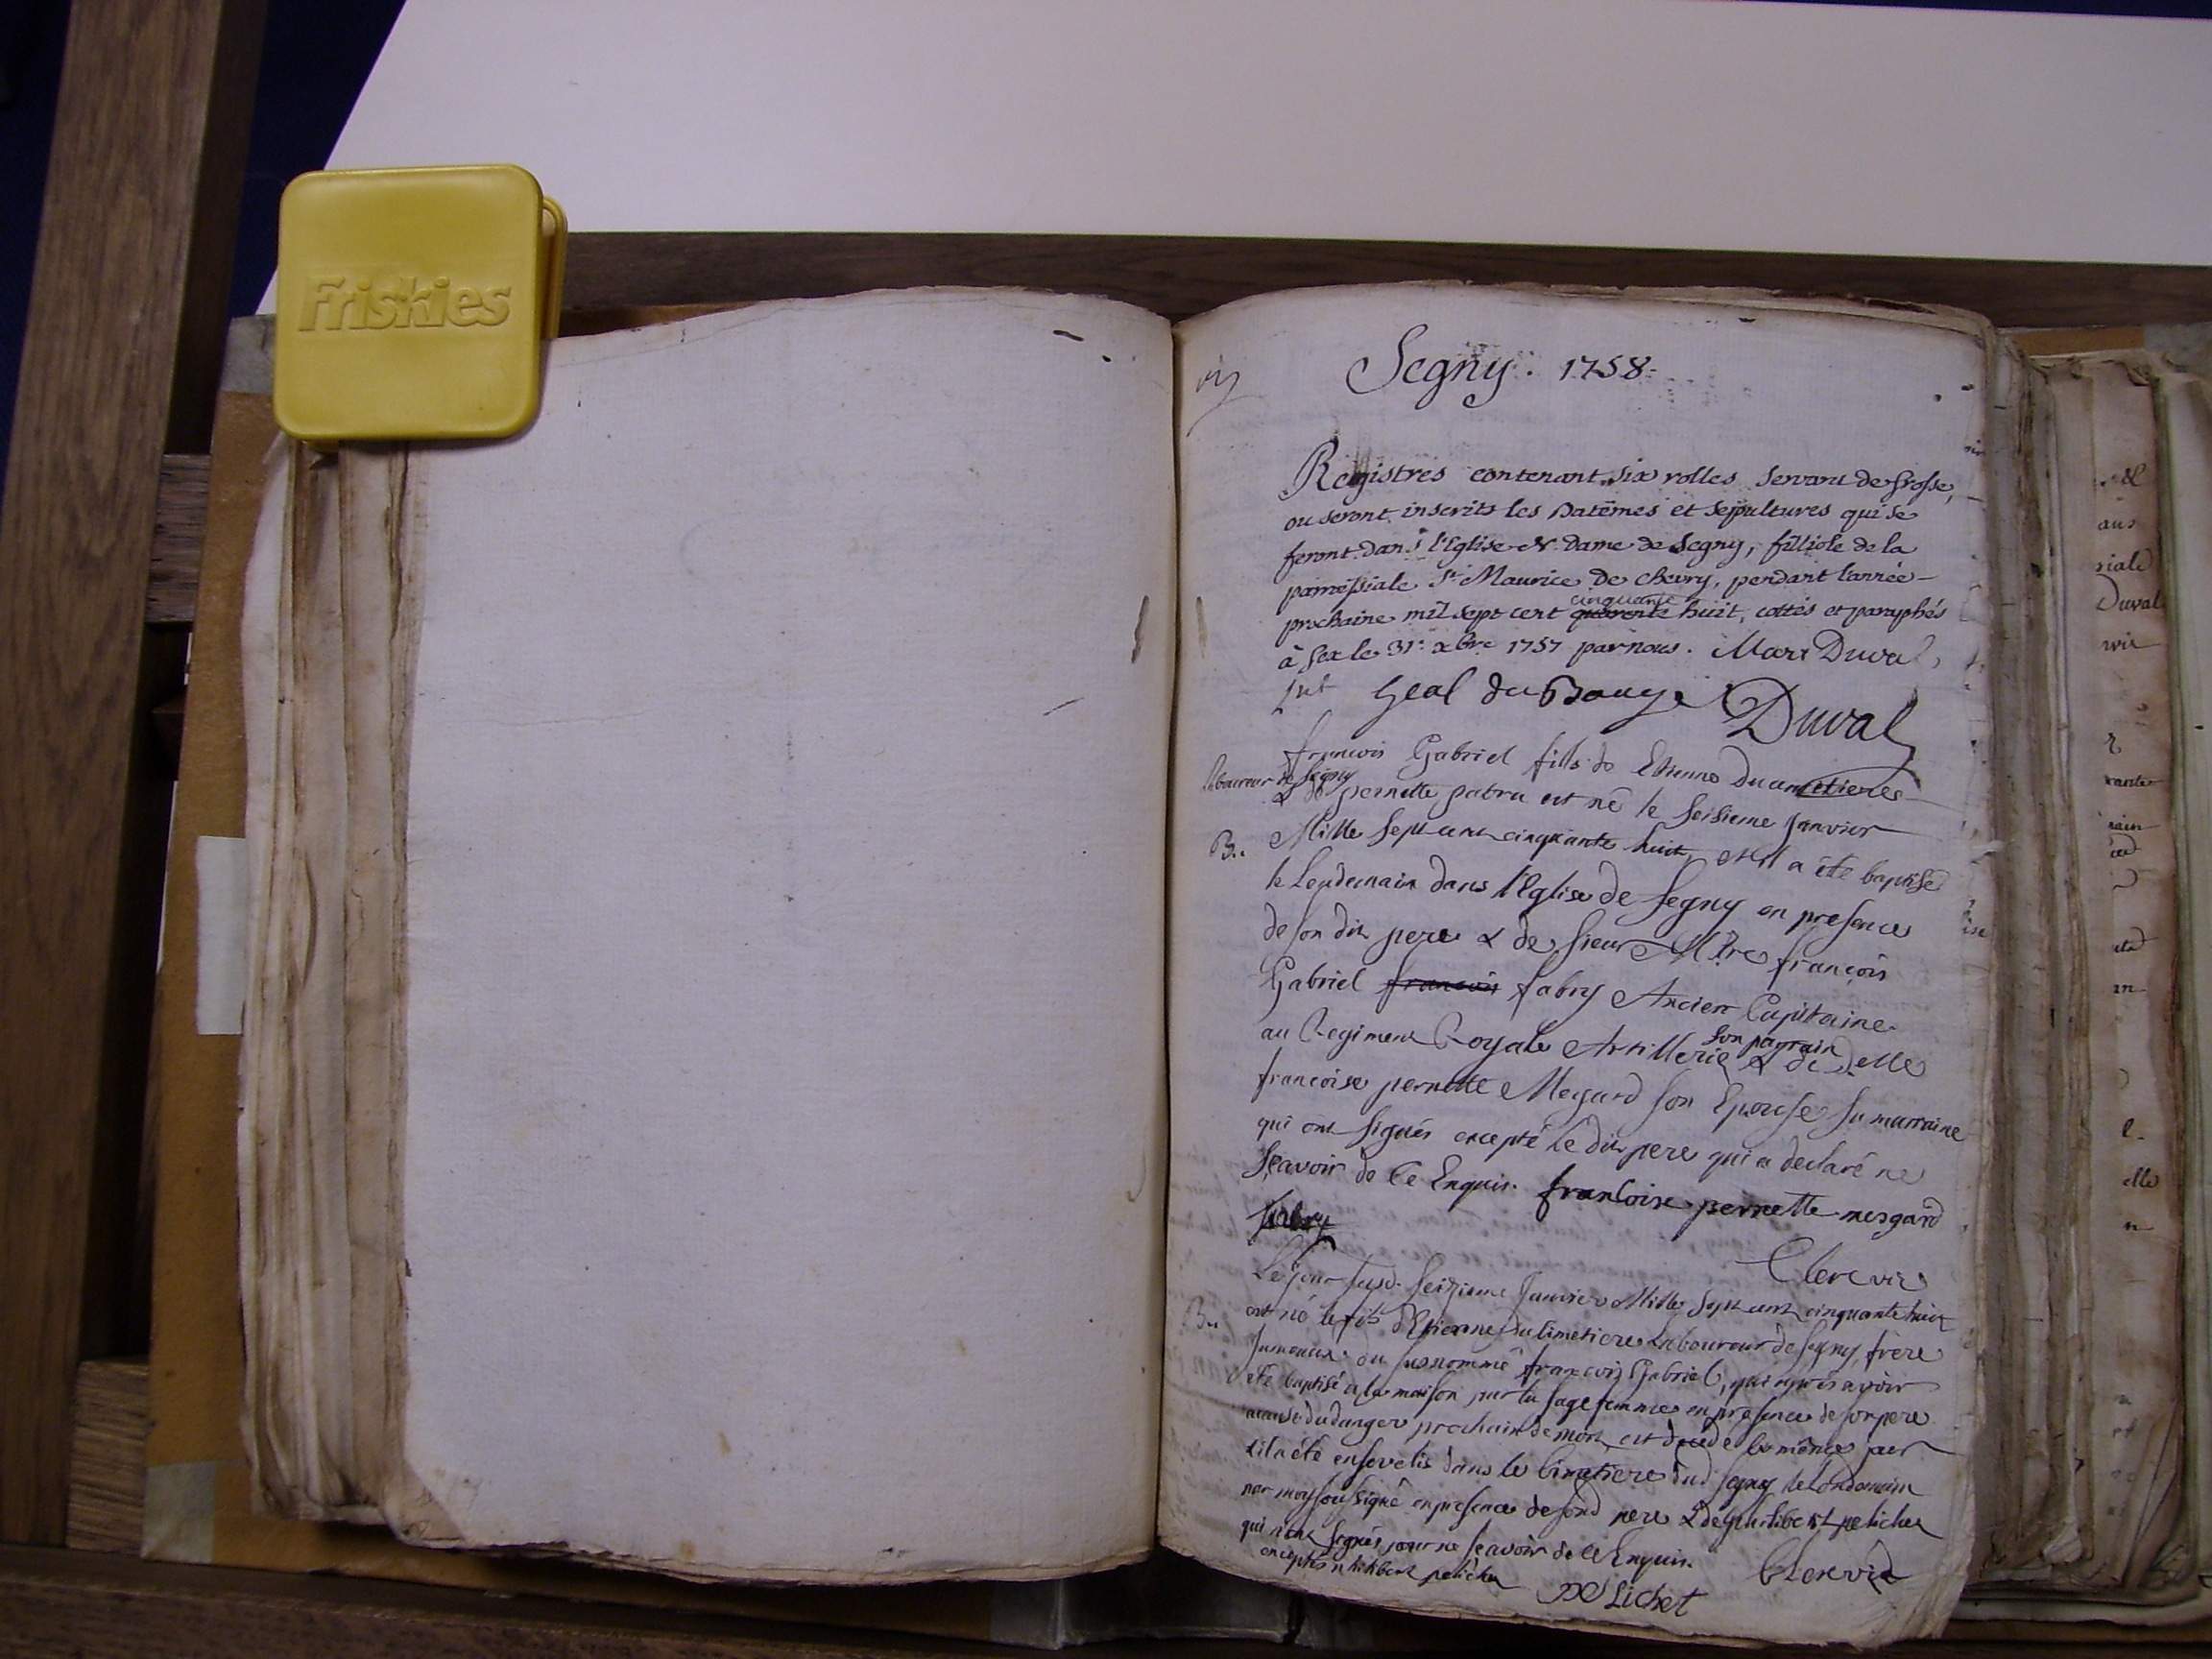 Friskies
Segny. 1758.
Registres contenant six rolles servant de grosse,
ou seront inscrits les Batêmes et sepultures qui se
feront dans l'Eglise N. Dame de Segny, filliole de la
parroissiale St Maurice de Chevry, pendant l'année
cinquante
prochaine mil sept cent quarente huit, cottés et paraphés
à Gex le 31e xbre 1757 par nous. Marc Duval,
Geal du Duval
francois Gabriel fils de Etienne Ducimetieres
laboureur de Segny
& de pernette patru est né le seisieme Janvier
B. Mille sept cent cinquante huit, et il a été baptisé
le lendemain dans l'Eglise de Segny en presence
de son dit pere & de sieur françois
Gabriel francois fabry Ancien Capitaine
au Regiment Royale Artillerie son parrain & de Delle
francoise pernette Megard son Epouse sa marraine
qui ont signés excepté le dit pere qui a declaré ne
scavoir de ce Enquis. francoise pernette mesgard
fabry
Clerc vic
Le jour susd. seizieme Janvier Mille sept cent cinquante huit
B. est né le fils d'Etienne Du Cimetiere Laboureur de Segny, frère
Jumeaux du susnommé françois Gabriel, qui après avoir
été baptisé à la maison par la sage femme en presence de son pere
a cause du danger prochain de mort, est decedé le même jour
& il a été ensevelis dans le Cimetiere dud Segny le lendemain
par moy soussigné en presence de sond pere & de philibert pelichet
qui n'ont signés pour ne scavoir de ce Enquis. Clerc vic
exceptés philibert pelichet
Pelichet
Duval